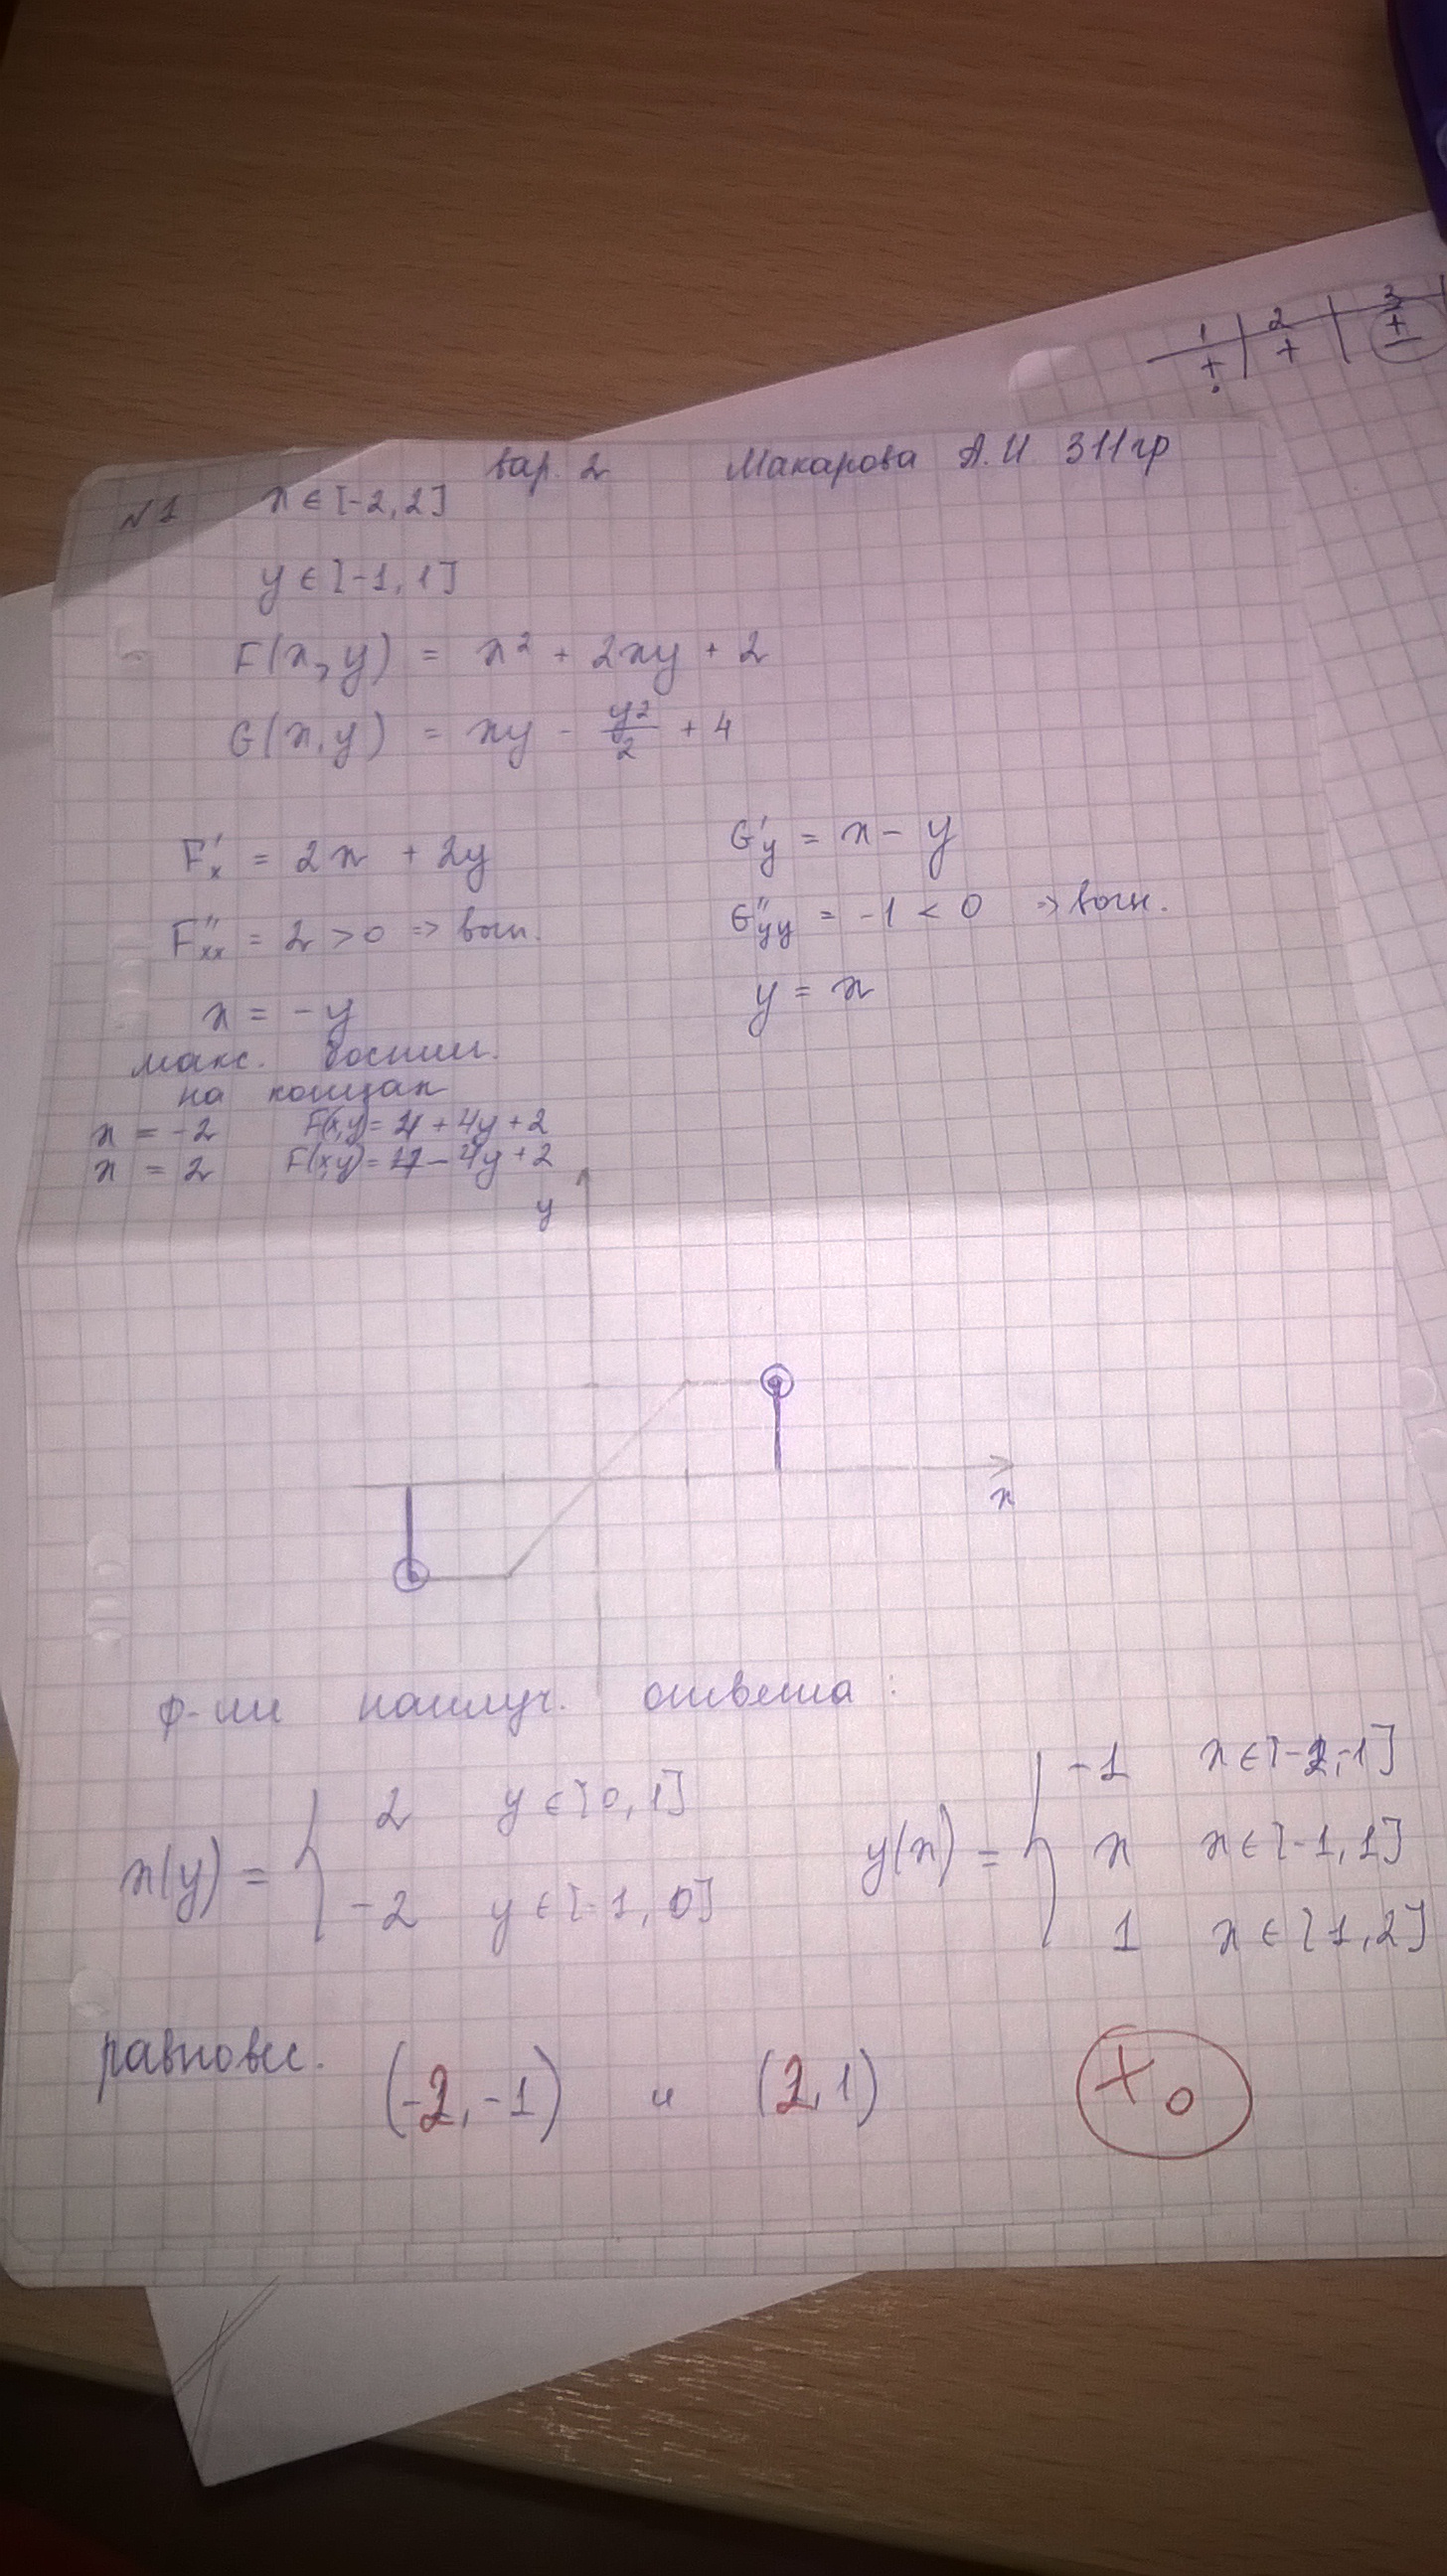 1 2 3
+. + ±
вар. 2 Макарова А.И 311гр
№1 x ∈ [-2,2]
y ∈ [-1,1]
F(x,y) = x² + 2xy + 2
G(x,y) = xy - y²/2 + 4
F'x = 2x + 2y
F''xx = 2 > 0 => вып.
x = -y
макс. достиг.
на концах
x = -2 F(x,y) = 4 + 4y + 2
x = 2 F(x,y) = 4 - 4y + 2
G'y = x - y
G''yy = -1 < 0 => вогн.
y = x
y
x
ф-ии наилуч. ответа:
x(y) = { 2 y ∈ [0,1]
-2 y ∈ [-1,0]
y(x) = { -1 x ∈ [-2,-1]
x x ∈ [-1,1]
1 x ∈ [1,2]
равновес. (-2,-1) и (2,1)
+0